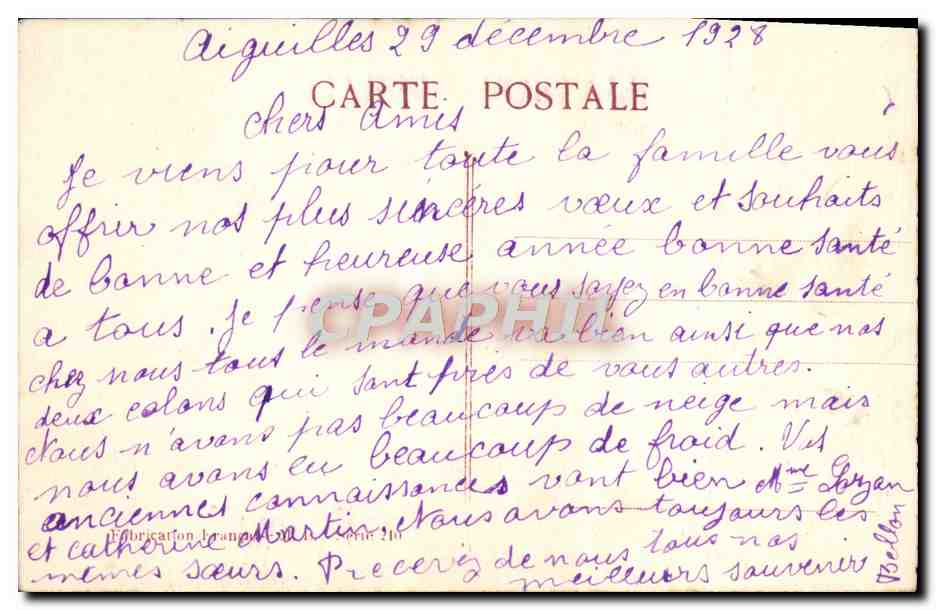 Aiguilles 29 décembre 1928
CARTE POSTALE
chers Amis
Je viens pour toute la famille vous
offrir nos plus sincères vœux et souhaits
de bonne et heureuse année bonne santé
a tous. Je pense que vous soyez en bonne santé
CPAPHIL
chez nous tous le monde va bien ainsi que nos
deux colons qui sont près de vous autres.
Nous n'avons pas beaucoup de neige mais
nous avons eu beaucoup de froid. Vos
anciennes connaissances vont bien Mme
et catherine Martin. Nous avons toujours les
Fabrication Française Série 210
mêmes sœurs. Recevez de nous tous nos
meilleurs souvenir
Bellon